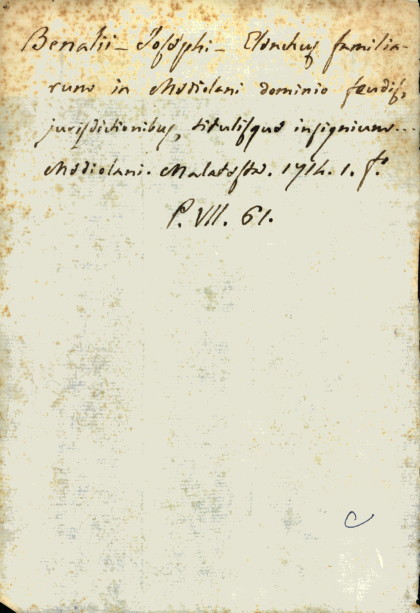 Benalii - Josephi - Elenchus familia-
rum in Mediolani dominio feudis,
jurisdictionibus, titulisque insignium -
Mediolani. Malatesta. 1714. 1. f.º
P. VII. 61.
C